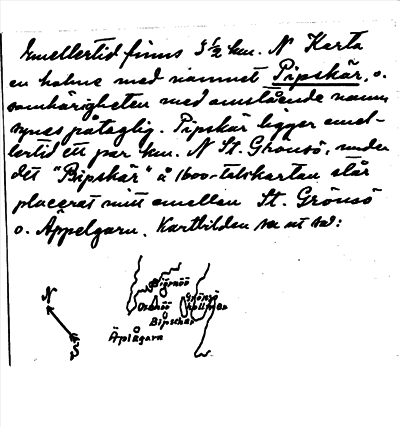 Emellertid finns 3 ½ km. N Karta
en holme med namnet Pipskär, o.
samhörigheten med omstående namn
synes påtaglig. Pipskär ligger emel-
lertid ett par km. N St. Grönsö, under
det "Bipskär" å 1600-talskartan står
placerat mitt emellan St. Grönsö
o. Äppelgarn. Kartbilden ser ut så:
Björnöö
N
Grönsö
Bipschär
Äplägarn
S